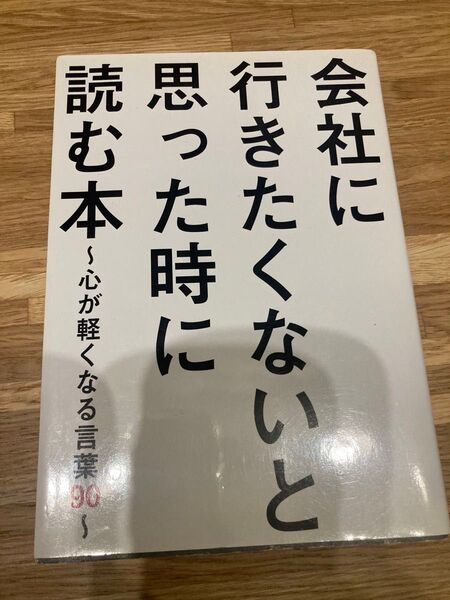 会社に
行きたくないと
思った時に
読む本
～心が軽くなる言葉90～